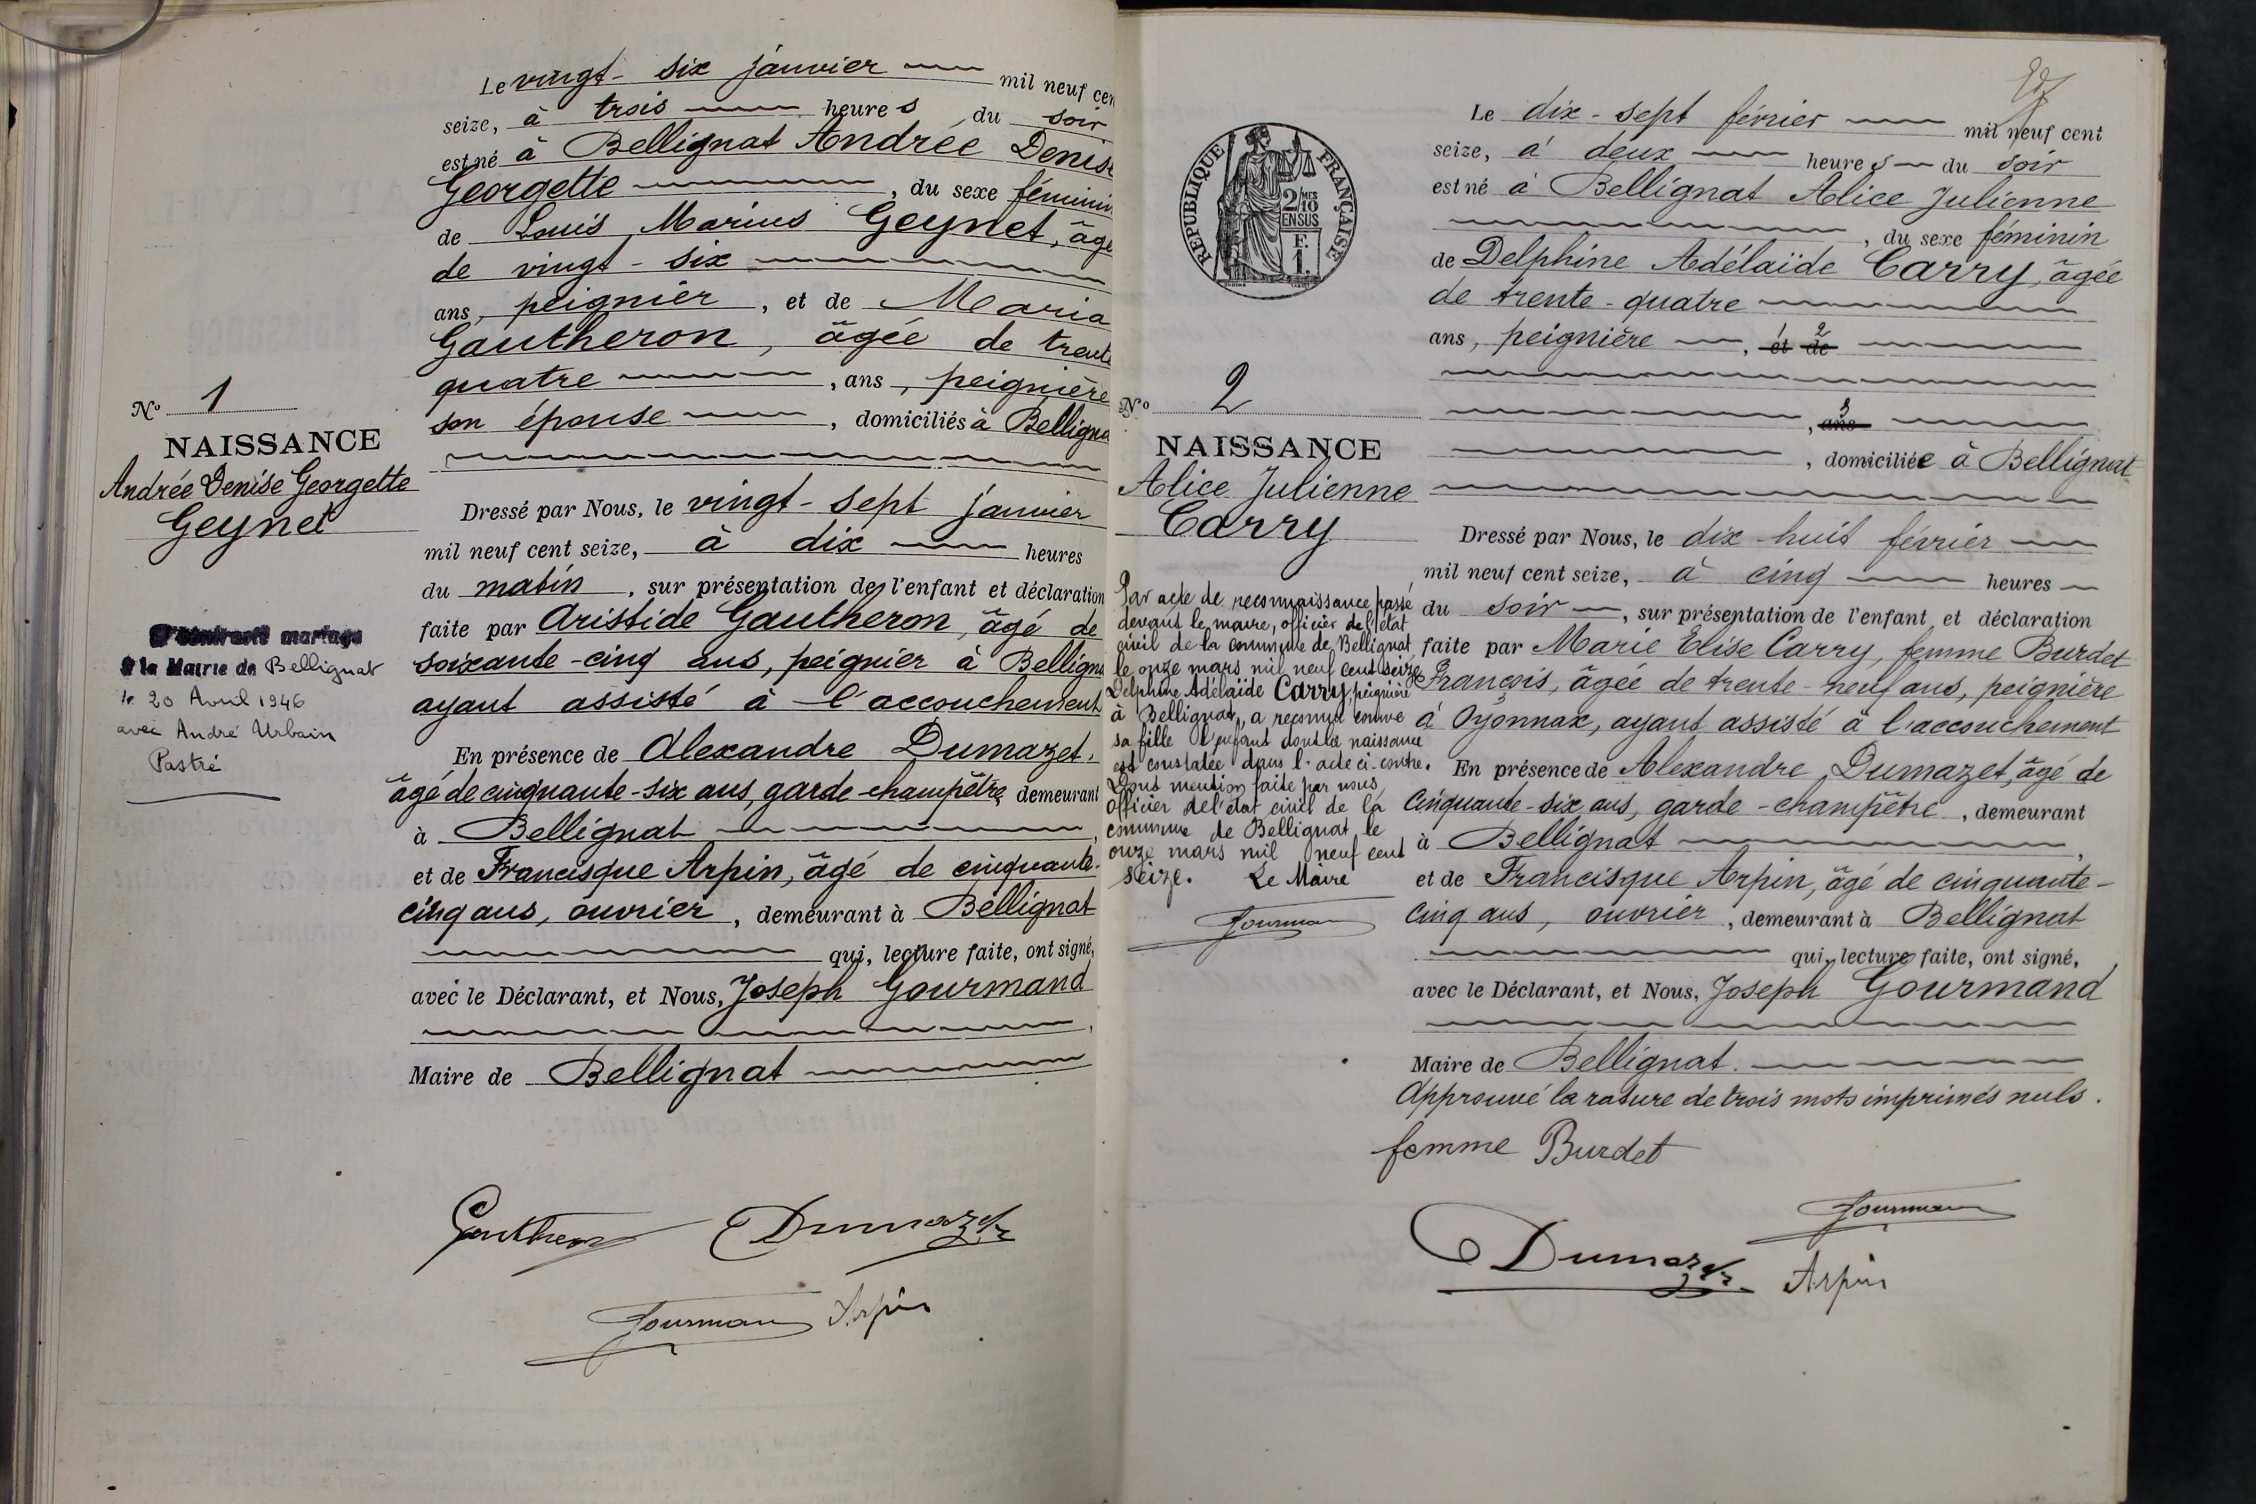 Le vingt-six janvier mil neuf cen
seize, à trois heures du soir
est né à Bellignat Andrée Denise
Georgette, du sexe féminin
de Louis Marius Geynet, âgé
de vingt-six
ans, peignier, et de Maria
Gautheron, âgée de trente
quatre, ans, peignière
son épouse, domiciliés à Belligna
Nº 1
NAISSANCE
Andrée Denise Georgette
Geynet
Dressé par Nous, le vingt-sept janvier
mil neuf cent seize, à dix heures
du matin, sur présentation de l'enfant et déclaration
faite par Aristide Gautheron, âgé de
soixante-cinq ans, peignier à Belligna
ayant assisté à l'accouchement
En présence de Alexandre Dumazet,
âgé de cinquante-six ans, garde-champêtre demeurant
à Bellignat,
et de Francisque Arpin, âgé de cinquante-
cinq ans, ouvrier, demeurant à Bellignat
qui, lecture faite, ont signé,
avec le Déclarant, et Nous, Joseph Gourmand
Maire de Bellignat
mariage
à la Mairie de Bellignat
le 20 Avril 1946
avec André Urbain
Pastré
Gautheron Dumazet
Gourmand Arpin
RÉPUBLIQUE FRANÇAISE
2/10
EN SUS
F.
1.
Le dix-sept février mil neuf cent
seize, à deux heures du soir
est né à Bellignat Alice Julienne
, du sexe féminin
de Delphine Adélaïde Carry, âgée
de trente-quatre
ans, peignière, 1 et 2 de
3
, ans
, domiciliée à Bellignat
Nº 2
NAISSANCE
Alice Julienne
Carry
Par acte de reconnaissance passé
devant le maire, officier de l'état
civil de la commune de Bellignat,
le onze mars mil neuf cent seize
Delphine Adélaïde Carry, peignière
à Bellignat, a reconnu comme
sa fille l'enfant dont la naissance
est constatée dans l'acte ci-contre.
Dont mention faite par nous
officier de l'état civil de la
commune de Bellignat, le
onze mars mil neuf cent
seize. Le Maire
Gourmand
Dressé par Nous, le dix-huit février
mil neuf cent seize, à cinq heures
du soir, sur présentation de l'enfant et déclaration
faite par Marie Elise Carry, femme Burdet
François, âgée de trente-neuf ans, peignière
à Oyonnax, ayant assisté à l'accouchement
En présence de Alexandre Dumazet, âgé de
cinquante-six ans, garde-champêtre, demeurant
à Bellignat,
et de Francisque Arpin, âgé de cinquante-
cinq ans, ouvrier, demeurant à Bellignat
qui, lecture faite, ont signé,
avec le Déclarant, et Nous, Joseph Gourmand
Maire de Bellignat.
Approuvé la rature de trois mots imprimés nuls.
femme Burdet
Gourmand
Dumazet Arpin